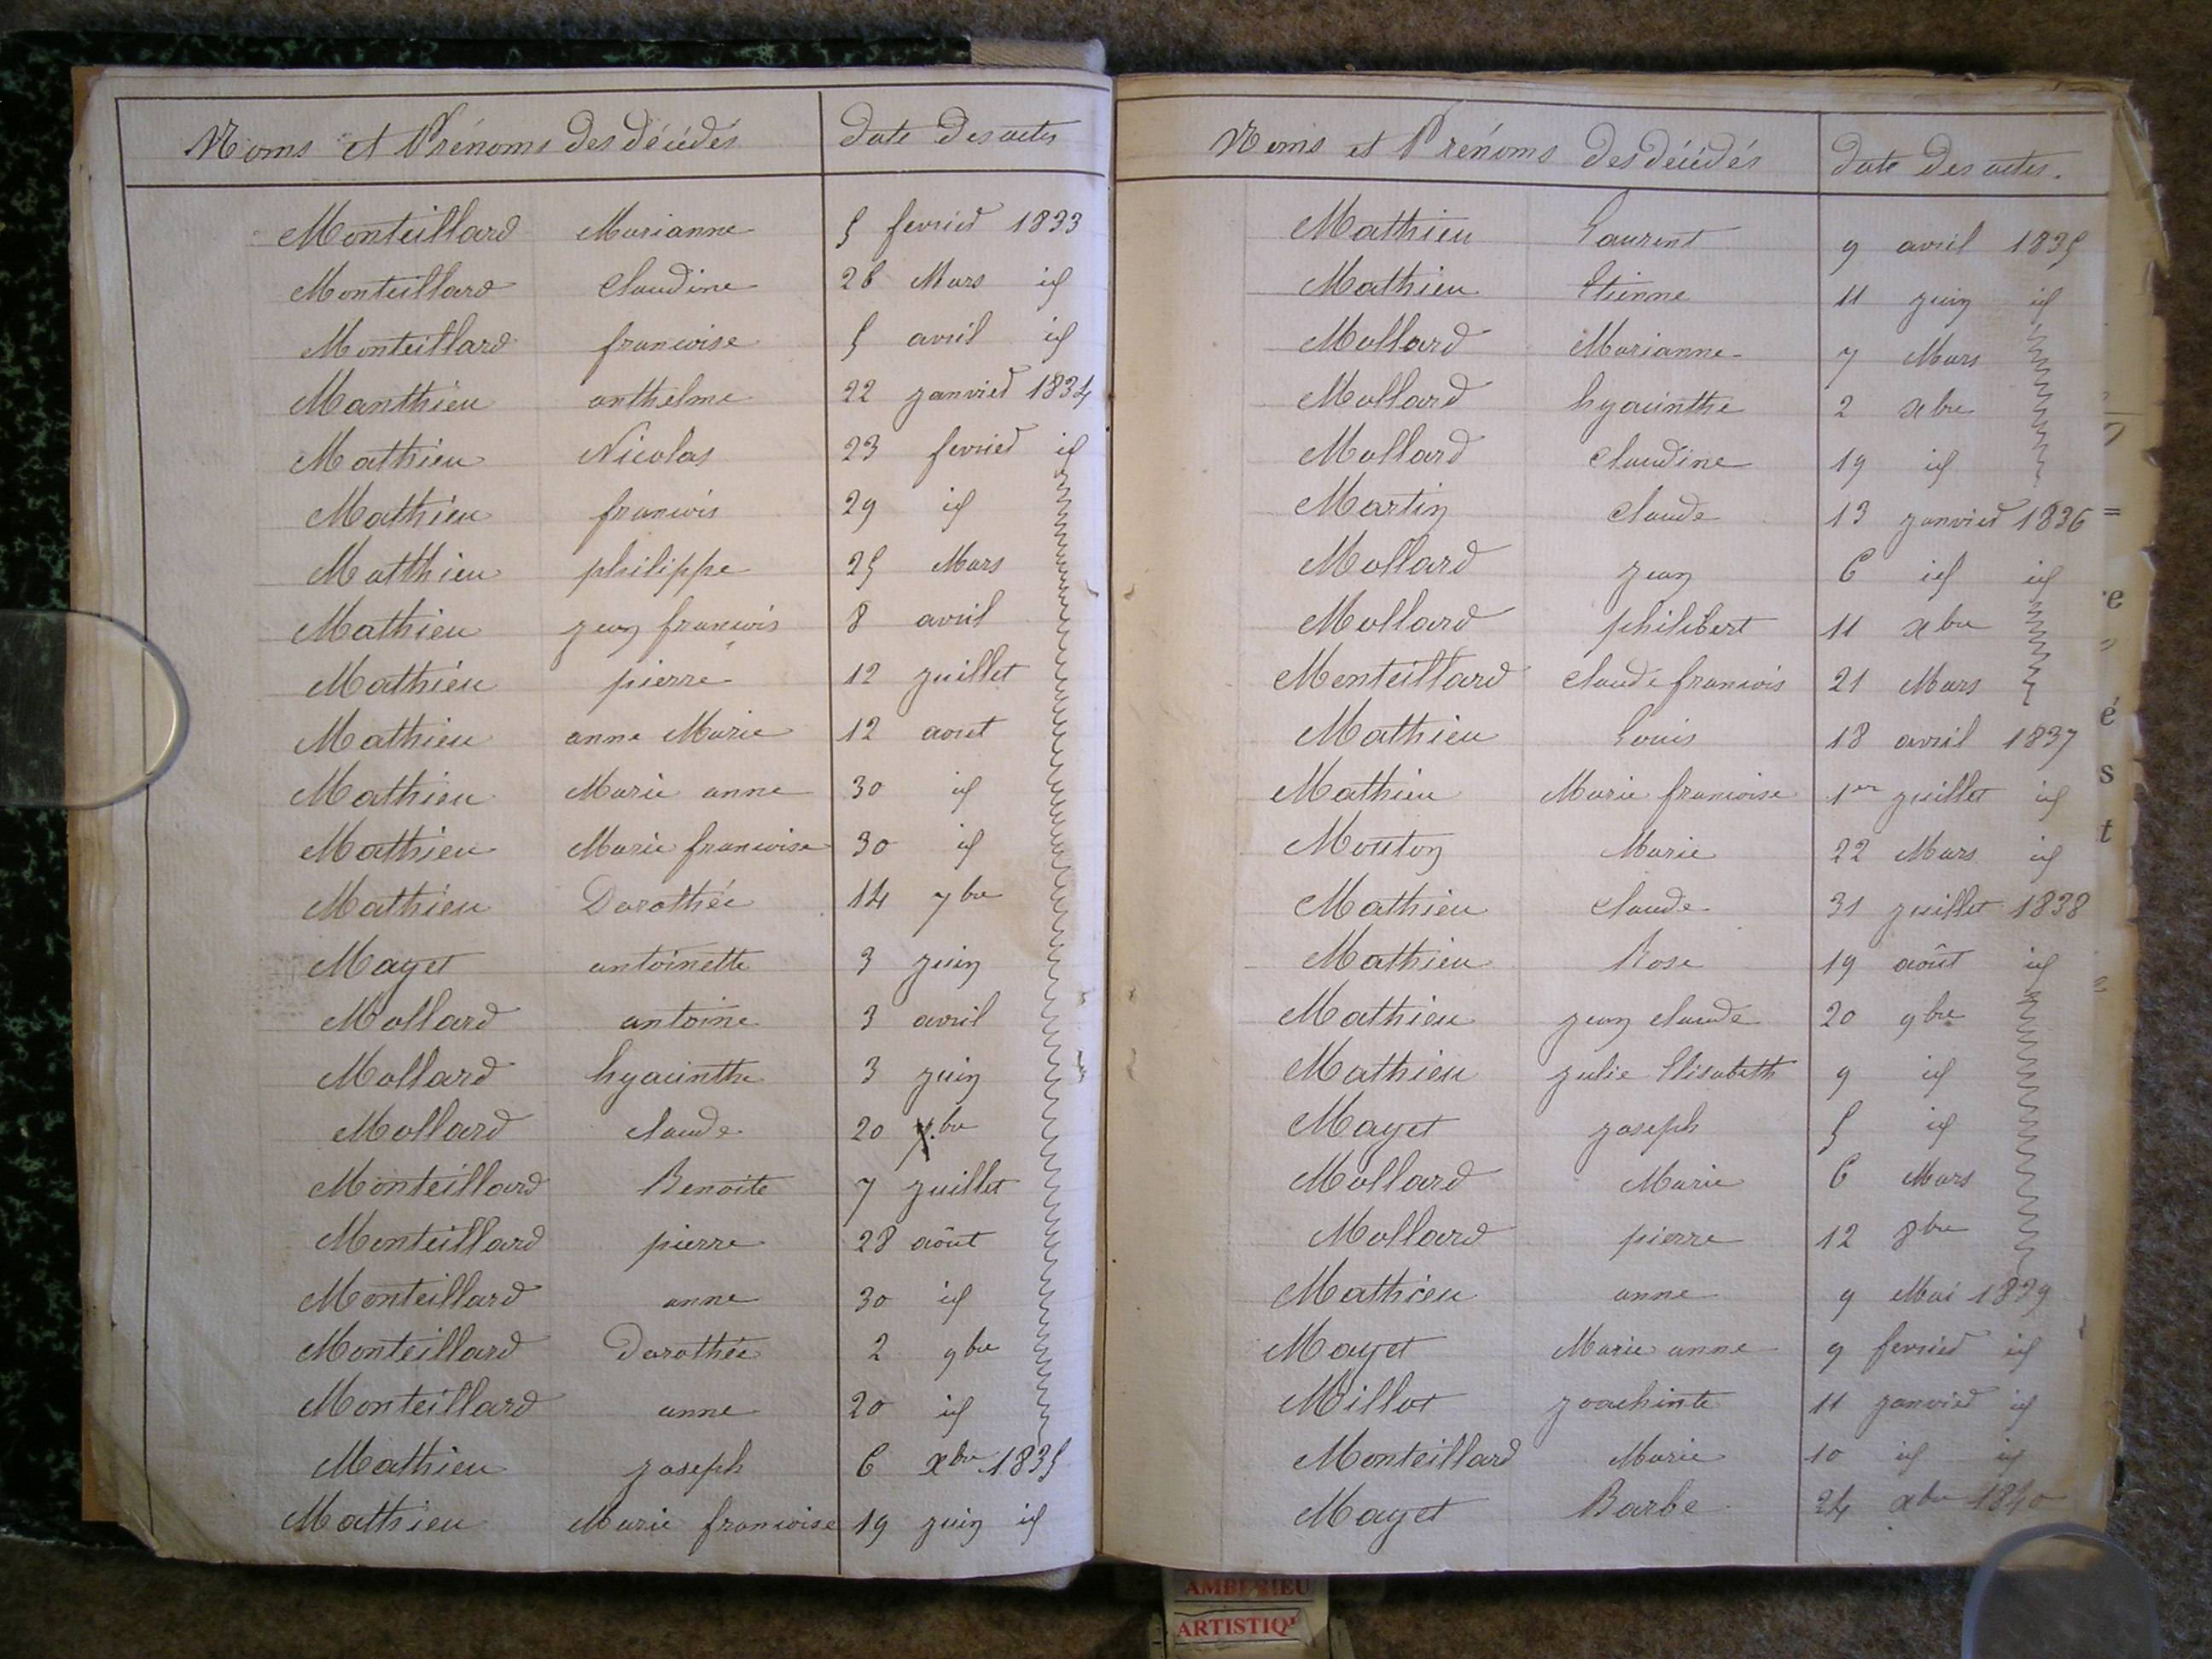 Noms et Prénoms des décédés Date des actes
Monteillard Marianne 5 fevrier 1833
Monteillard Claudine 26 Mars id
Monteillard francoise 5 avril id
Manthieu anthelme 22 janvier 1834
Mathieu Nicolas 23 fevrier id
Mathieu francois 29 id
Matthieu philippe 25 Mars
Mathieu jean francois 8 avril
Mathieu pierre 12 juillet
Mathieu anne Marie 12 aout
Mathieu Marie anne 30 id
Mathieu Marie francoise 30 id
Mathieu Dorothée 14 7bre
Mayet antoinette 3 juin
Mollard antoine 3 avril
Mollard hyacinthe 3 juin
Mollard claude 20 bre
Monteillard Benoite 7 juillet
Monteillard pierre 28 août
Monteillard anne 30 id
Monteillard Dorothée 2 9bre
Monteillard anne 20 id
Mathieu joseph 6 xbre 1835
Mathieu Marie francoise 19 juin id
Noms et Prénoms des décédés Date des actes.
Mathieu Laurent 9 avril 1835
Mathieu Etienne 11 juin id
Mollard Marianne 7 Mars
Mollard hyacinthe 2 xbre
Mollard Claudine 19 id
Martin Claude 13 janvier 1836
Mollard jean 6 id id
Mollard philibert 11 xbre
Monteillard Claude francois 21 Mars
Mathieu Louis 18 avril 1837
Mathieu Marie francoise 1er juillet id
Mouton Marie 22 Mars id
Mathieu Claude 31 juillet 1838
Mathieu Rose 19 août id
Mathieu jean claude 20 9bre
Mathieu julie Elisabeth 9 id
Mayet joseph 5 id
Mollard Marie 6 Mars
Mollard pierre 12 8bre
Mathieu anne 9 Mai 1839
Mayet Marie anne 9 fevrier id
Millot joachinte 11 janvier id
Monteillard Marie 10 id id
Mayet Barbe 24 xbre 1840
e
é
s
t
AMBERIEU
ARTISTIQ